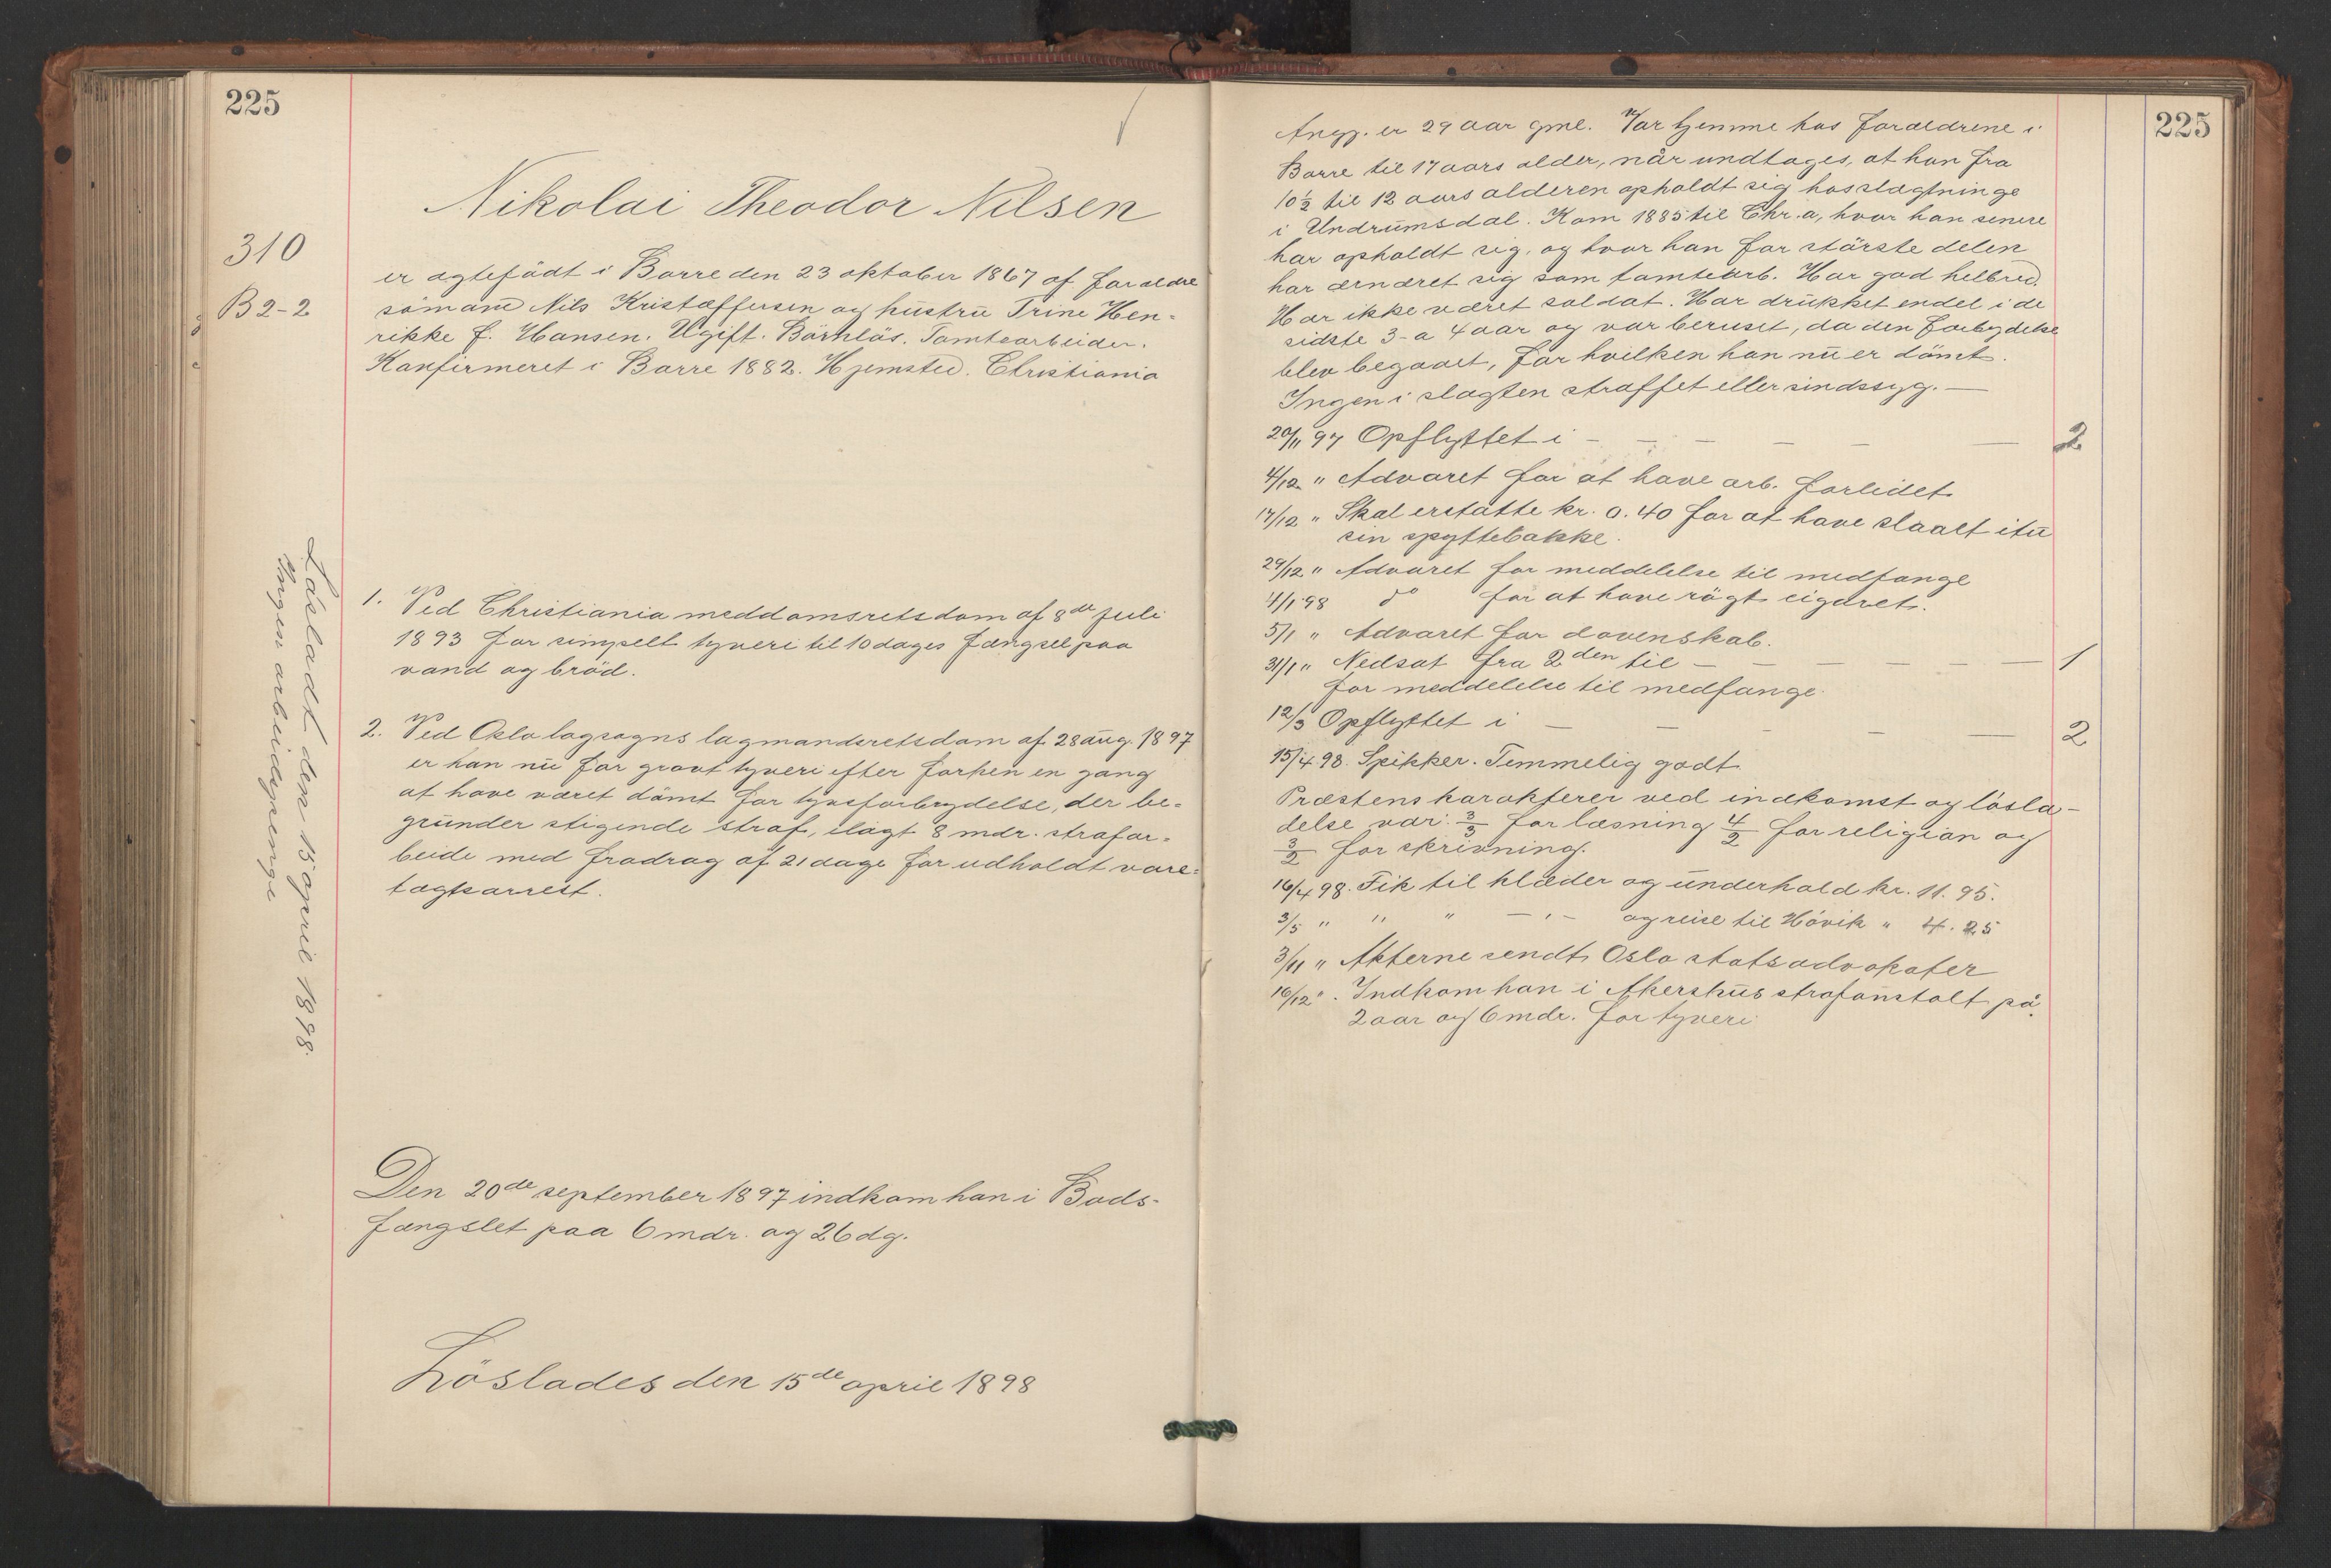 225
Nikolai Theodor Nilsen
310
B 2-2
er ægtefödt i Borre den 23 oktober 1867 af forældre
sömand Nils Kristoffersen og hustru Trine Hen-
rikke f. Hansen. Ugift. Börnlös. Tomtearbeider.
Konfirmeret i Borre 1882. Hjemsted. Christiania
1. Ved Christiania meddomsretsdom af 8de juli
1893 for simpelt tyveri til 10 dages fængsel paa
vand og bröd.
2. Ved Oslo lagsogns lagmandsretsdom af 28 aug. 1897
er han nu for grovt tyveri efter forhen en gang
at have været dömt for tyvsforbrydelse, der be-
grunder stigende straf, ilagt 8 mdr. strafar-
beide med fradrag af 21 dage for udholdt vare-
tægtsarrest.
Den 20de september 1897 indkom han i Bods-
fængslet paa 6 mdr. og 26 dg.
Löslades den 15de april 1898
Lösladt den 15 april 1898.
Ingen arbeidspenge
225
Angj. er 29 aar gml. Var hjemme hos forældrene i
Borre til 17 aars alder, når undtages, at han fra
10½ til 12 aars alderen opholdt sig hos slægtninge
i Undrumsdal. Kom 1885 til Chr.a, hvor han senere
har opholdt sig, og hvor han for störste delen
har ernæret sig som tomtearb. Har god helbred.
Har ikke været soldat. Har drukket endel i de
sidste 3 a 4 aar og var beruset, da den forbrydelse
blev begaaet, for hvilken han nu er dömt.
Ingen i slægten straffet eller sindssyg. —
20/11 97 Opflyttet i — — — — — — 2
4/12 " Advaret for at have arb. forlidet
17/12 " Skal erstatte kr. 0.40 for at have slaaet itu
sin spyttebakke.
29/12 " Advaret for meddelelse til medfange
4/1 98 do for at have rögt cigaret.
5/1 " Advaret for dovenskab.
31/1 " Nedsat fra 2den til — — — — — — 1
for meddelelse til medfange.
12/3 Opflyttet i — — — — — 2
15/4 98. Spikker. Temmelig godt
Præstens karakterer ved indkomst og lösla-
delse var: 3/3 for læsning 4/2 for religion og
3/2 for skrivning.
16/4 98. Fik til klæder og underhold kr. 11.95.
3/5 " " " — " — og reise til Hövik " 4.25
3/11 " Akterne sendt Oslo statsadvokater
16/12 ". Indkom han i Akershus strafanstalt på
2 aar og 6 mdr. for tyveri